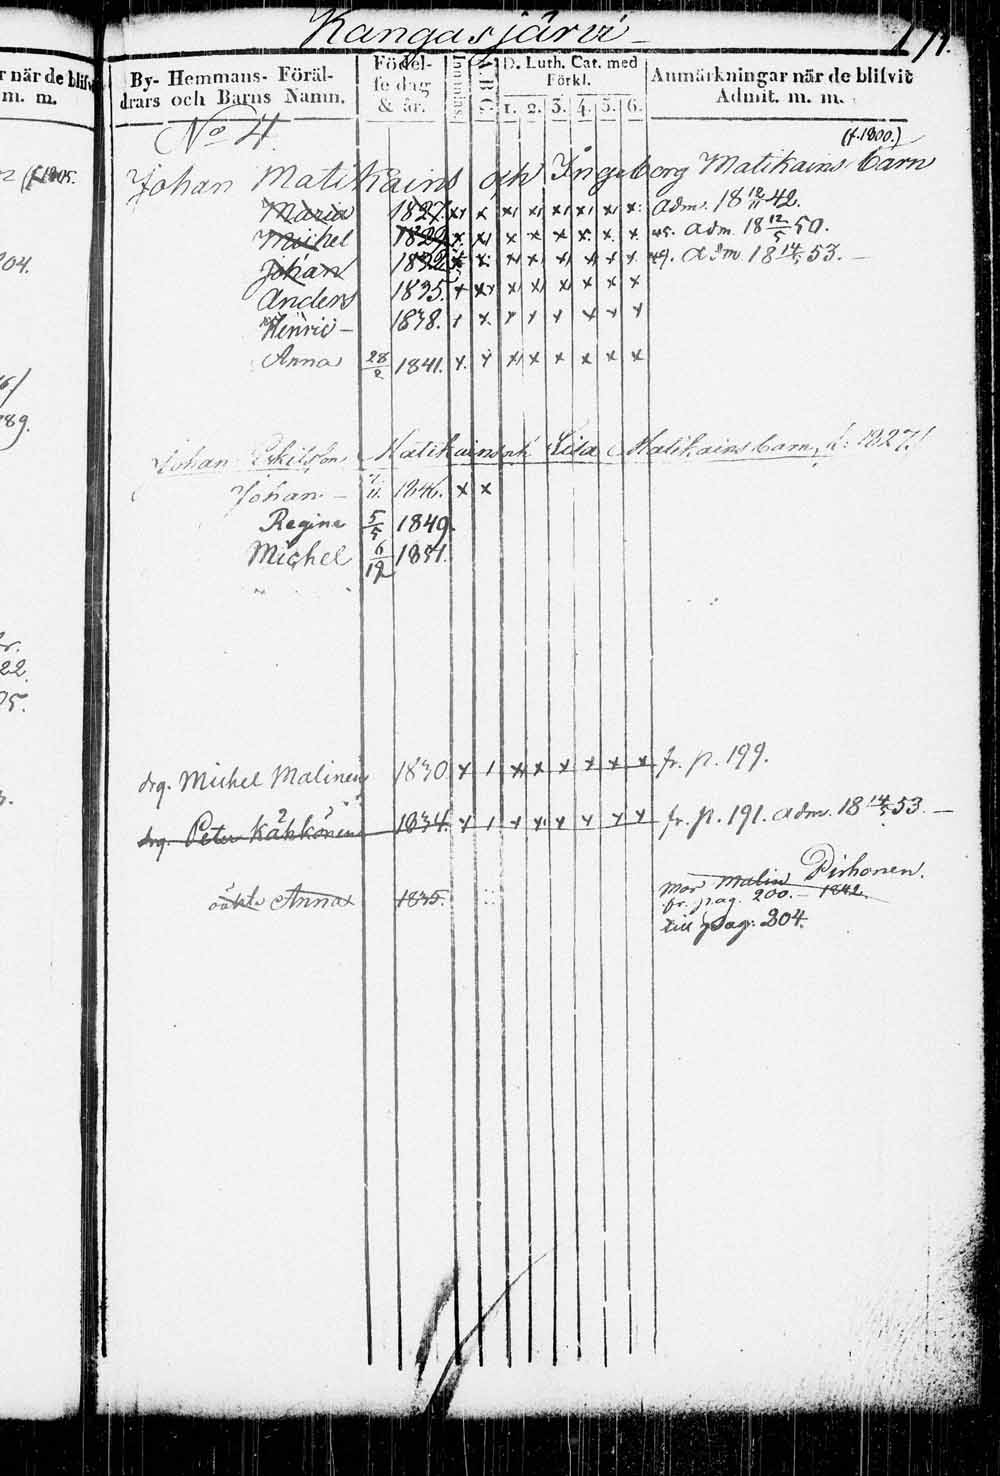 Kangasjärvi
By- Hemmans- Föräl-
drars och Barns Namn.
Födel-
se dag
& år.
Innanläs.
A B C.
D. Luth. Cat. med
Förkl.
1. 2. 3. 4. 5. 6.
Anmärkningar när de blifvit
Admit. m. m.
r när de blifv
m. m.
No 4.
(f. 1800.)
Johan Matikains och Ingeborg Matikains barn
Maria 1827. x x x x x x x x adm. 18 12/11 42.
Michel 1829 x x x x x x x x 45. adm. 18 12/5 50.
Johan 1832 x x x x x x x x 49. adm. 18 14/5 53. –
Anders 1835. x x x x x x x x
Henric – 1838. x x x x x x x x
Anna 28/2 1841. x x x x x x x x
Johan Eskilsson Matikains och Lisa Matikains barn, f. 1827!
Johan – 1846. x x
Regina 5/5 1849.
Michel 6/12 1851.
drg. Michel Malinen 1830 x 1 x x x x x x fr. p. 199.
drg. Peter Kähkönen 1834. x 1 x x x x x x fr. p. 191. adm. 18 14/5 53. –
oäkta Anna 1835.
mor Malin Pirhonen.
fr. pag. 200. – 1842.
till pag. 204.
(f. 1805.
204.
89.
22.